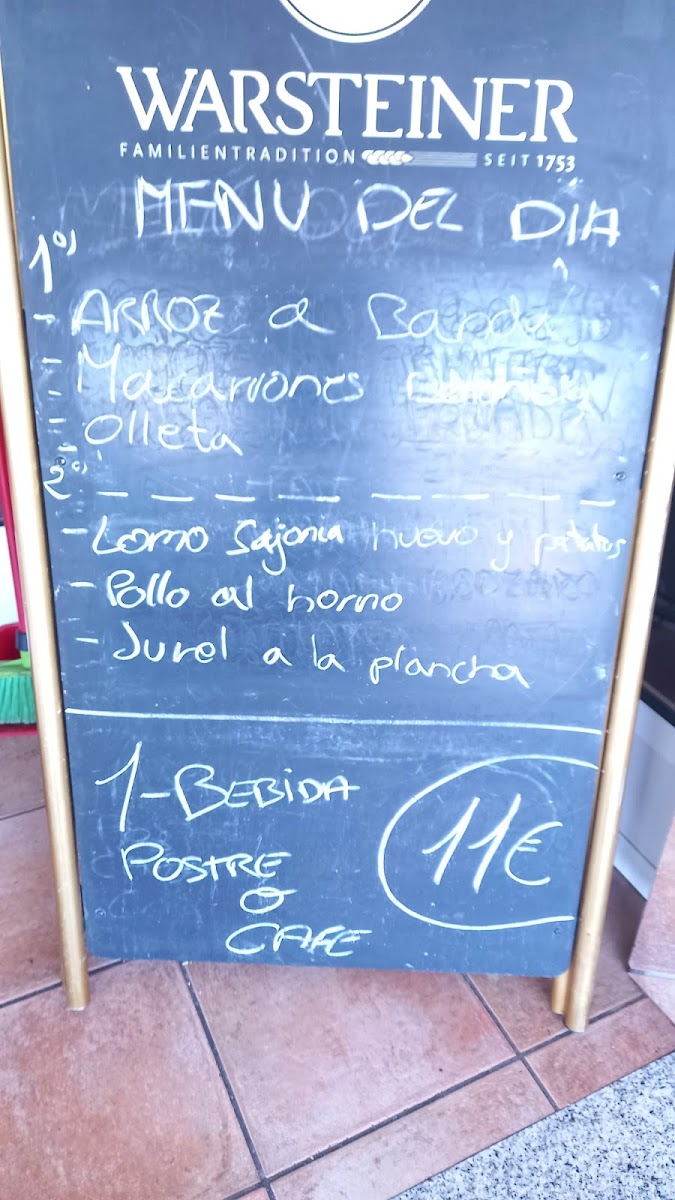 WARSTEINER
FAMILIENTRADITION SEIT 1753
MENU DEL DIA
1º)
- ARROZ a Banda
- Macarrones
- Olleta
2º)
- Lomo Sajonia huevo y patatas
- Pollo al horno
- Jurel a la plancha
1-BEBIDA
POSTRE
O
CAFE
11€